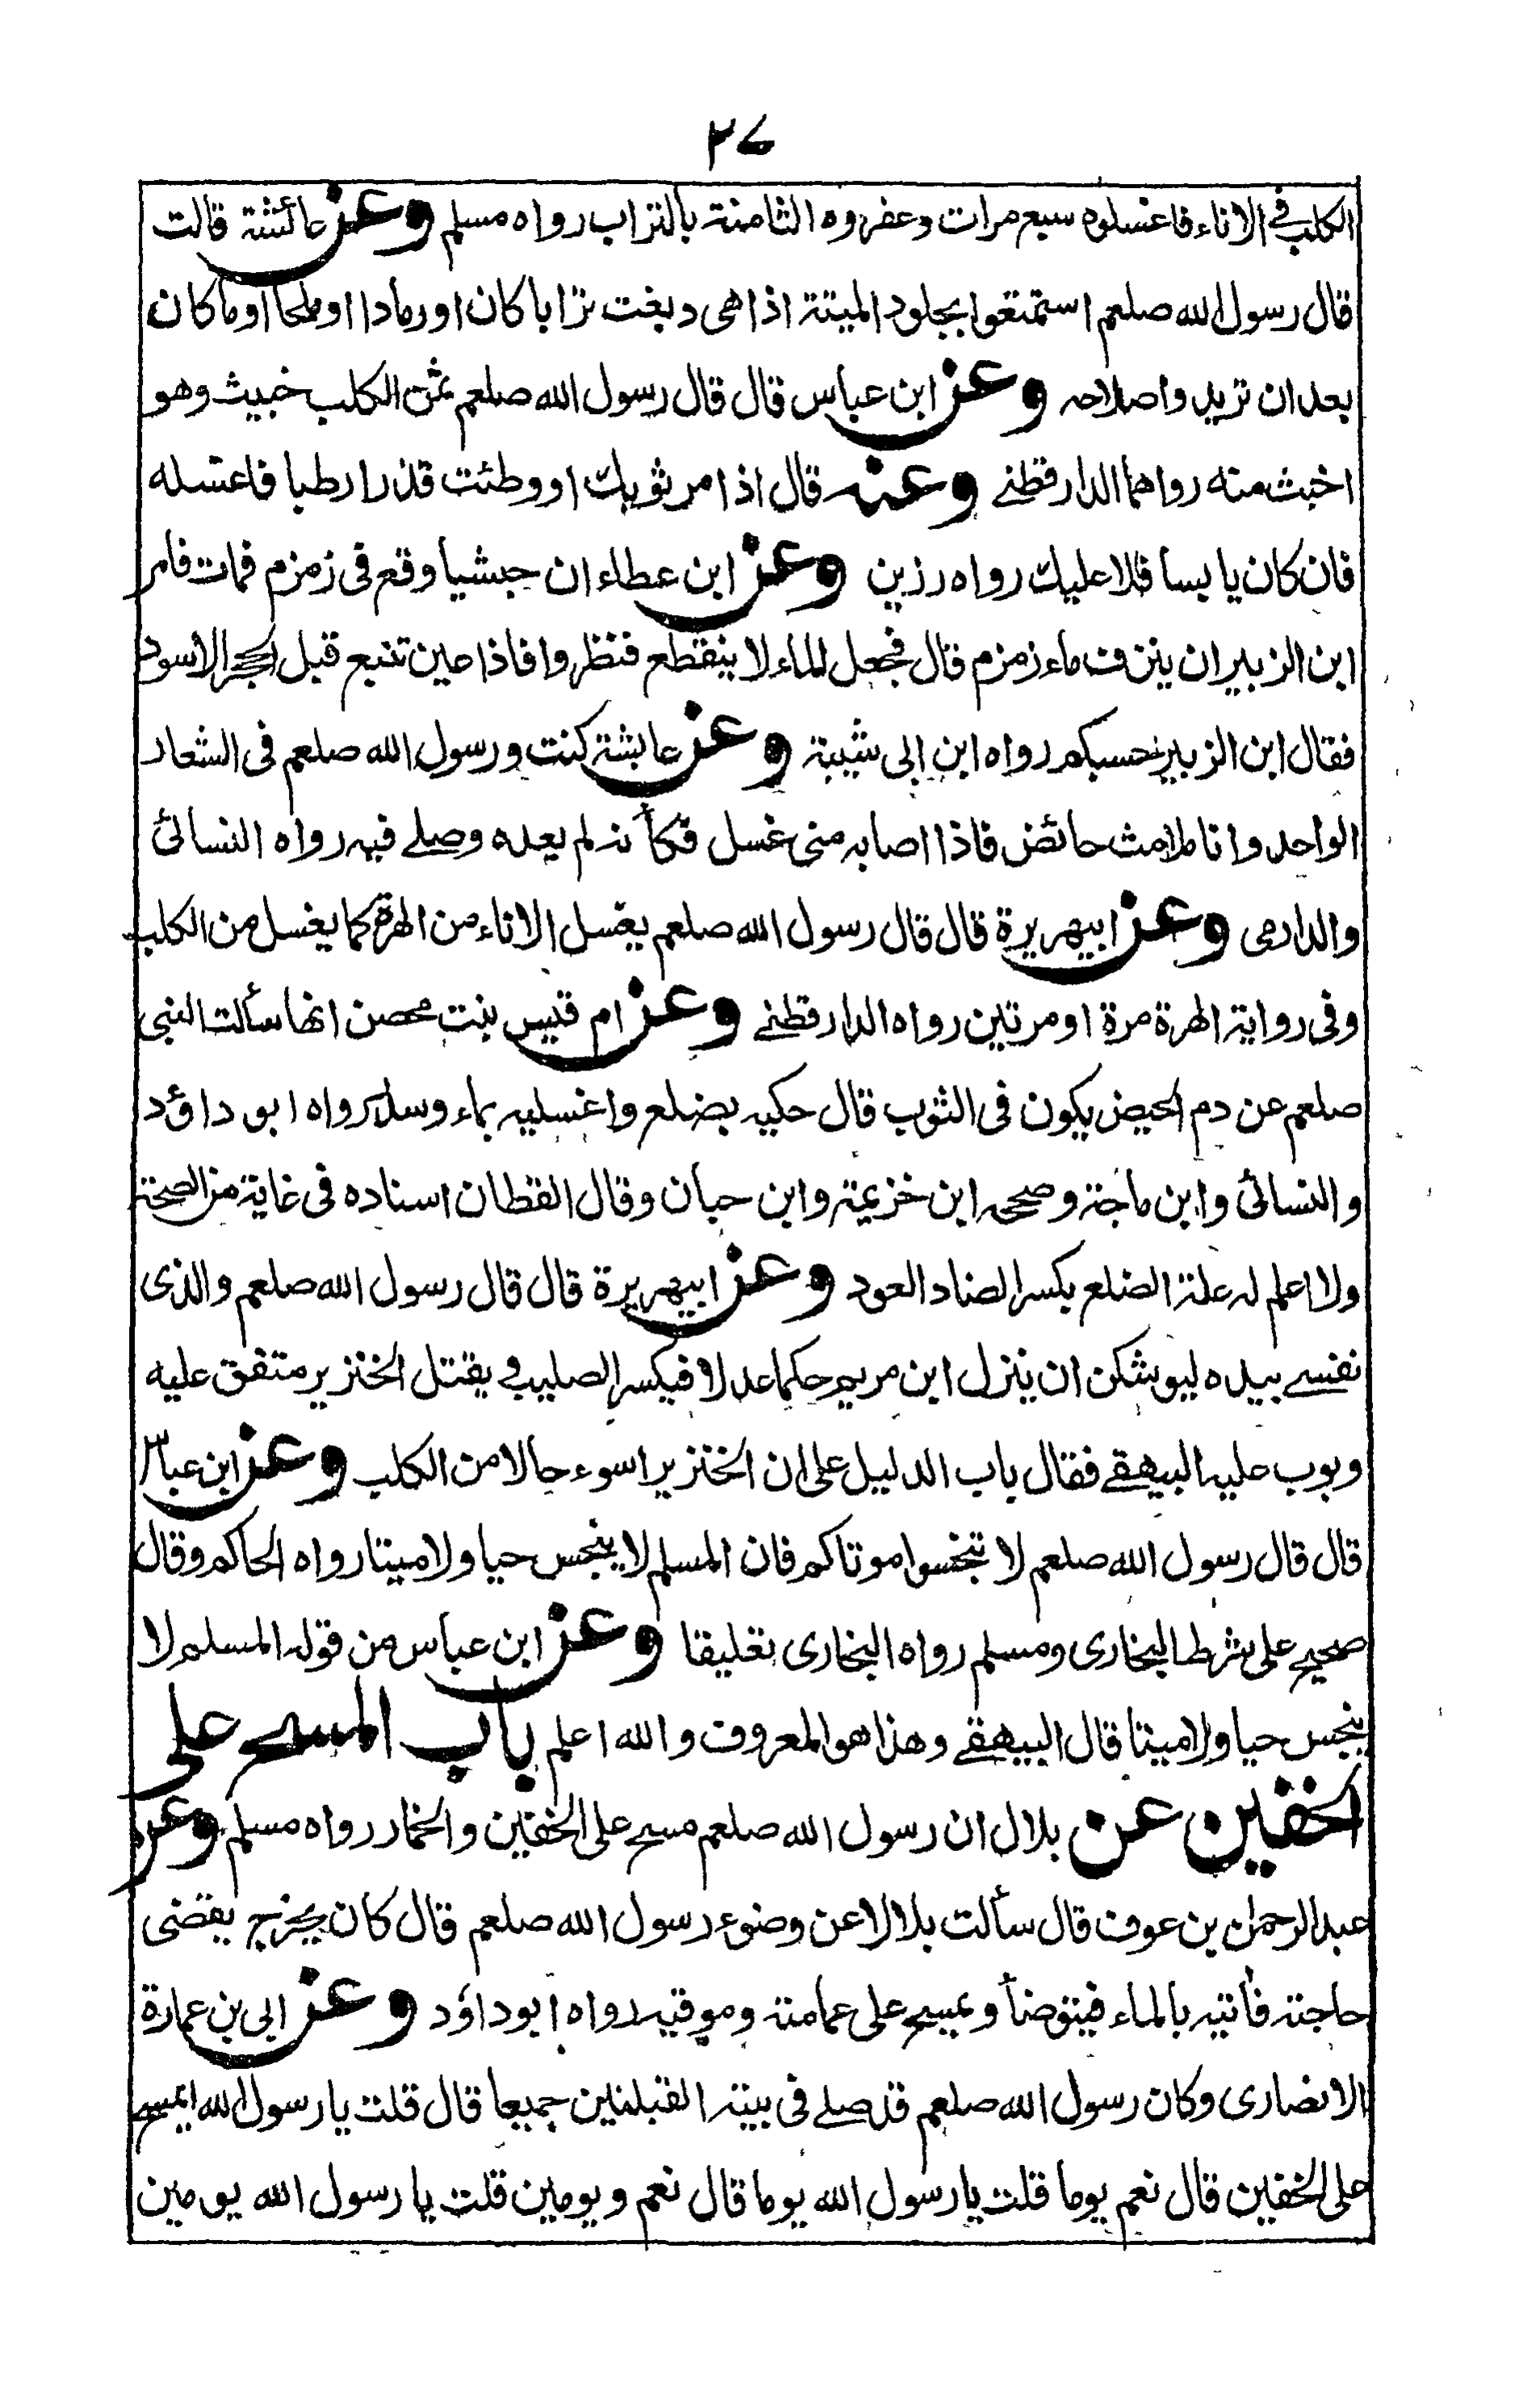 ۲۷
الكلب في الاناء فاغسلوه سبع مرات وعفروه الثامنة بالتراب رواه مسلم وعن عائشة قالت
قال رسول الله صلعم استمتعوا بجلود الميتة اذا هى دبغت ترابا كان او رمادا او ملحا او ما كان
بعد ان تريد واصلاحه وعن ابن عباس قال قال رسول الله صلعم ثمن الكلب خبيث وهو
اخبث منه رواهما الدارقطنے وعنه قال اذا مر ثوبك او وطئت قذرا رطبا فاغسله
فان كان يابسا فلا عليك رواه رزين وعن ابن عطاء ان حبشيا وقع فى زمزم فمات فامر
ابن الزبير ان ينزف ماء زمزم قال فجعل الماء لا ينقطع فنظروا فاذا عين تنبع قبل الحجر الاسود
فقال ابن الزبير حسبكم رواه ابن ابى شيبة وعن عايشة كنت ورسول الله صلعم فى الشعار
الواحد وانا طامث حائض فاذا اصابه منى غسل مكانه لم يعده وصلے فيه رواه النسائى
والدارمى وعن ابيهريرة قال قال رسول الله صلعم يغسل الاناء من الهرة كما يغسل من الكلب
وفى رواية الهرة مرة او مرتين رواه الدارقطنے وعن ام قيس بنت محصن انها سألت النبى
صلعم عن دم الحيض يكون فى الثوب قال حكيه بضلع واغسليه بماء وسدر رواه ابو داؤد
والنسائى وابن ماجة وصححه ابن خزيمة وابن حبان وقال القطان اسناده فى غاية من الصحة
ولا اعلم له علة الضلع بكسر الضاد العود وعن ابيهريرة قال قال رسول الله صلعم والذى
نفسے بيده ليوشكن ان ينزل ابن مريم حكما عدلا فيكسر الصليب و يقتل الخنزير متفق عليه
وبوب عليه البيهقے فقال باب الدليل على ان الخنزير اسوء حالا من الكلب وعن ابن عباس
قال قال رسول الله صلعم لا تنجسوا موتاكم فان المسلم لا ينجس حيا ولا ميتا رواه الحاكم وقال
صحيح على شرط البخارى ومسلم رواه البخارى تعليقا وعن ابن عباس من قوله المسلم لا
ينجس حيا ولا ميتا قال البيهقے وهذا هو المعروف والله اعلم باب المسح على
الخفين عن بلال ان رسول الله صلعم مسح على الخفين والخمار رواه مسلم وعن
عبد الرحمن بن عوف قال سألت بلالا عن وضوء رسول الله صلعم قال كان يخرج يقضى
حاجته فأتيه بالماء فيتوضأ ويمسح على عمامته وموقيه رواه ابو داؤد وعن ابى بن عمارة
الانصارى وكان رسول الله صلعم قد صلے فى بيته القبلتين جميعا قال قلت يا رسول الله ايمسح
على الخفين قال نعم يوما قلت يا رسول الله يوما قال نعم ويومين قلت يا رسول الله يومين